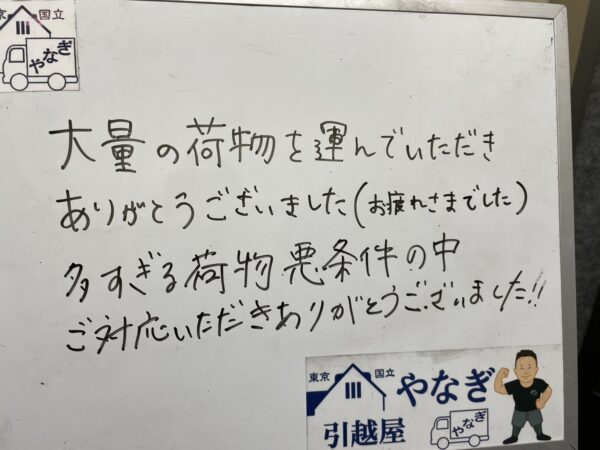 東京 国立
やなぎ
大量の荷物を運んでいただき
ありがとうございました(お疲れさまでした)
多すぎる荷物悪条件の中
ご対応いただきありがとうございました!!
東京 国立 やなぎ
引越屋 やなぎ